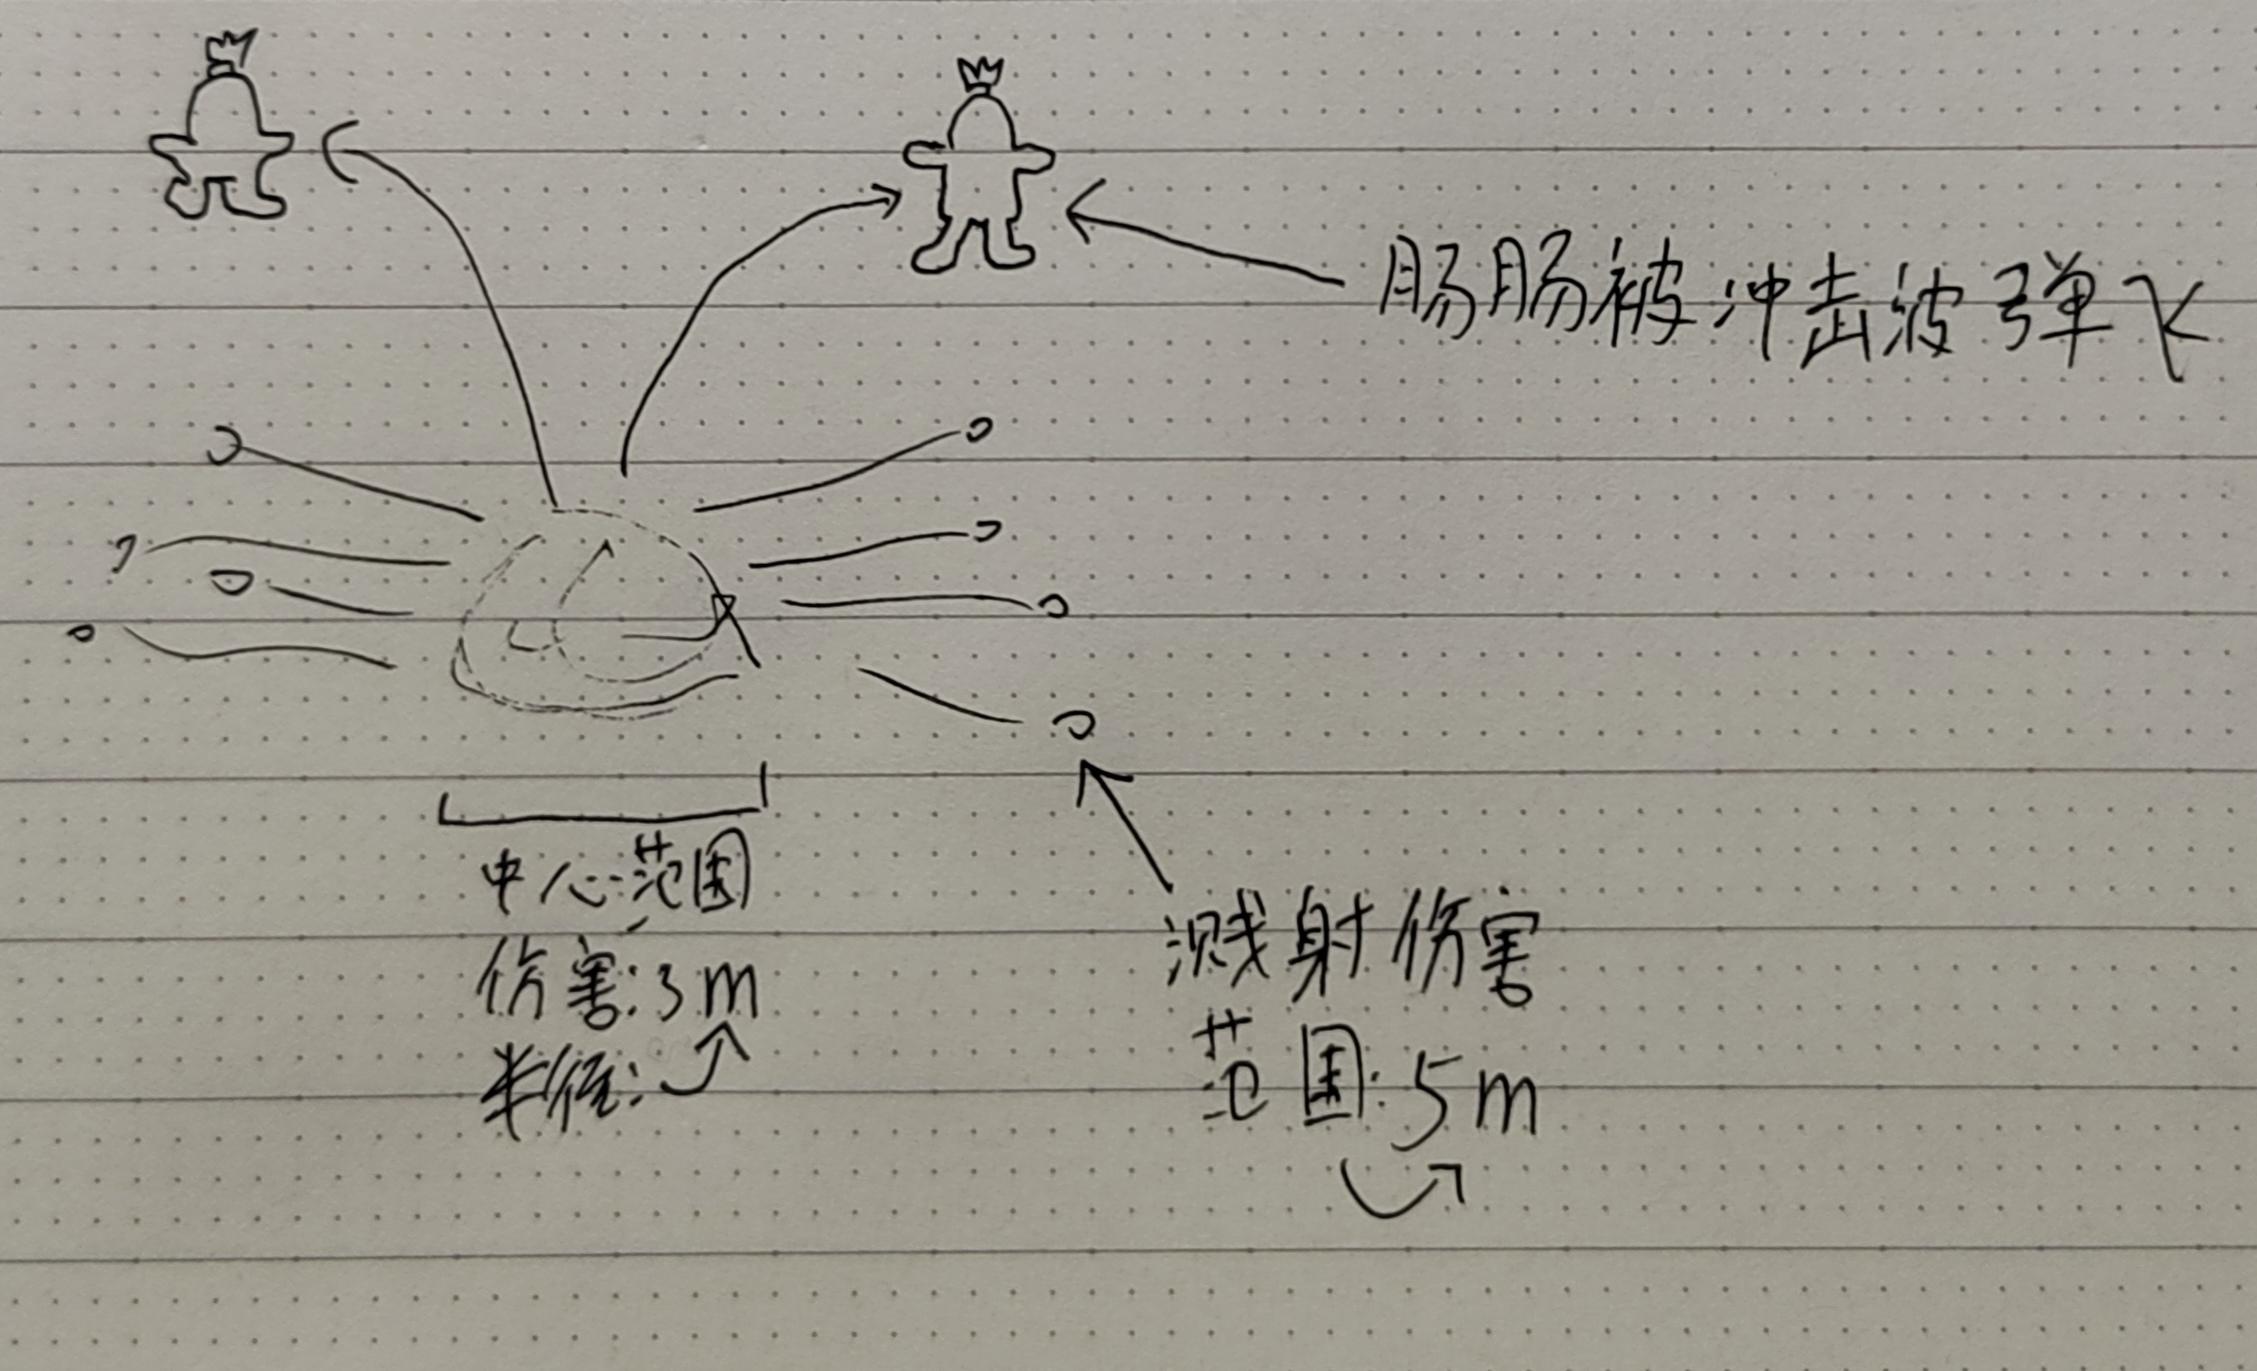 肠肠被冲击波弹飞
中心范围
伤害:3m
半径:
溅射伤害
范围:5m